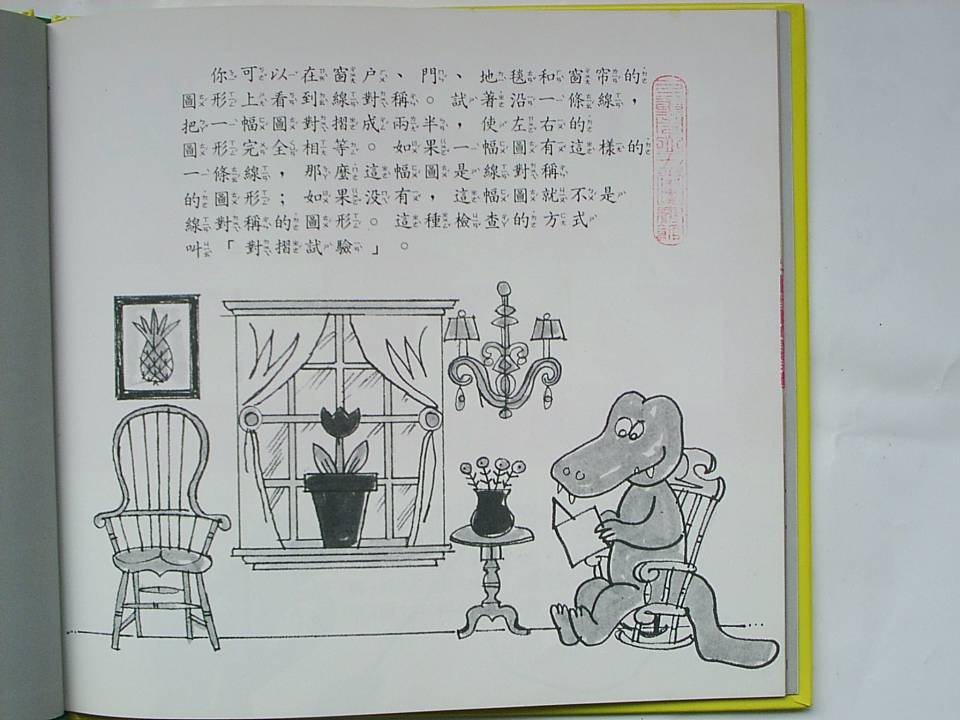 你可以在窗户、門、地毯和窗帘的
圖形上看到線對稱。試著沿一條線，
把一幅圖對摺成兩半，使左右的
圖形完全相等。如果一幅圖有這樣的
一條線，那麼這幅圖是線對稱
的圖形；如果没有，這幅圖就不是
線對稱的圖形。這種檢查的方式
叫「對摺試驗」。